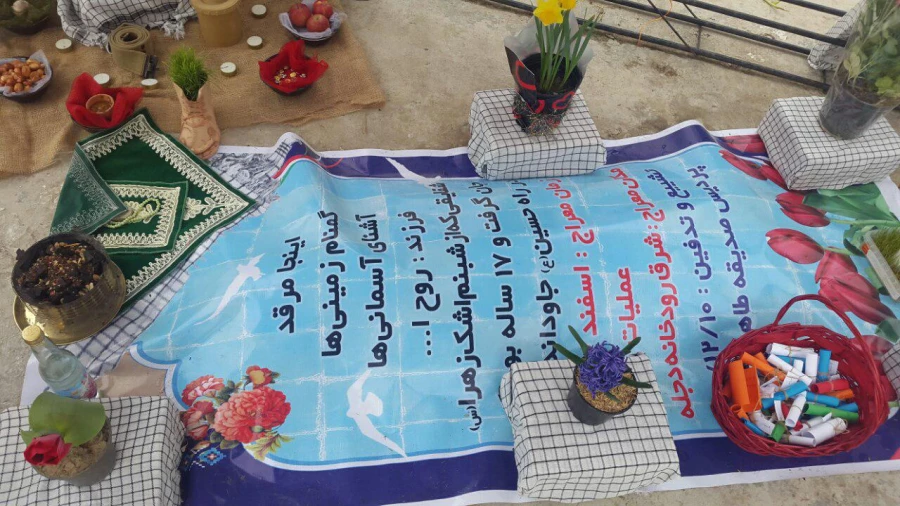 اینجا مرقد
گمنام زمینی‌ها
آشنای آسمانی‌ها
فرزند : روح ا...
شقایقی که از شبنم اشک زهرا(س)
جان گرفت و ۱۷ ساله
راه حسین(ع)
زمان معراج : اسفند
عملیات
مکان معراج : شرق رودخانه دجله
تشییع و تدفین : ۱۲/۱۰
پردیس صدیقه